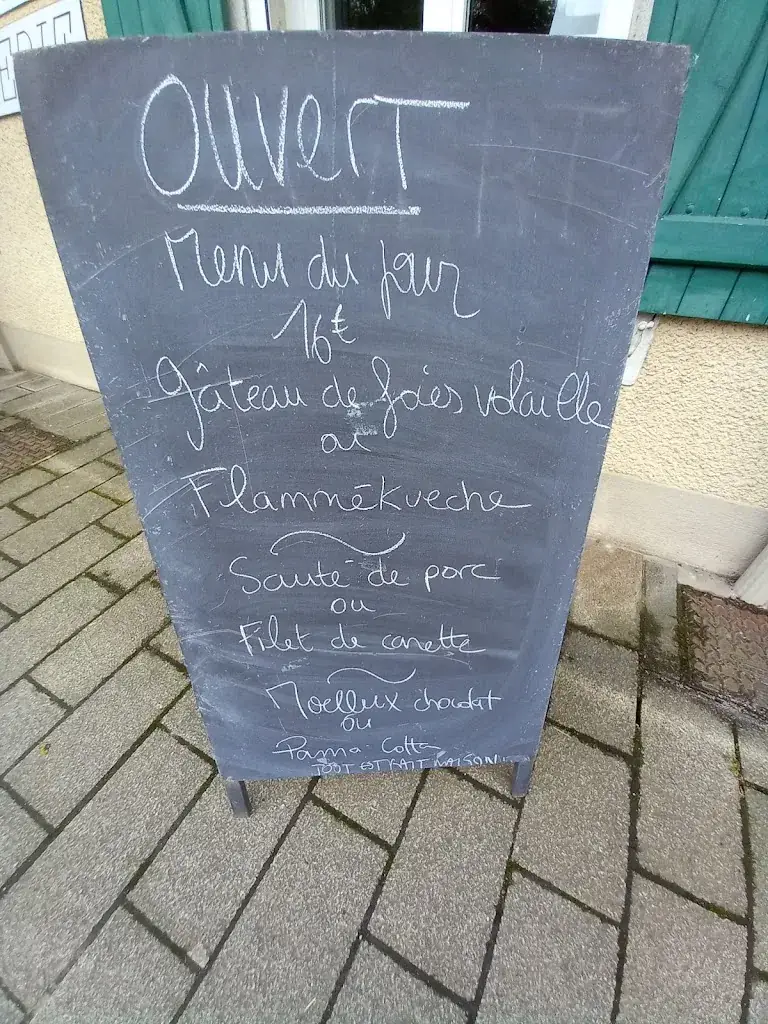 ERIE
OUVERT
Menu du jour
16€
gâteau de foies volaille
ou
Flammékueche
Sauté de porc
ou
Filet de canette
Moelleux chocolat
ou
Panna-Cotta
TOUT EST FAIT MAISON!!